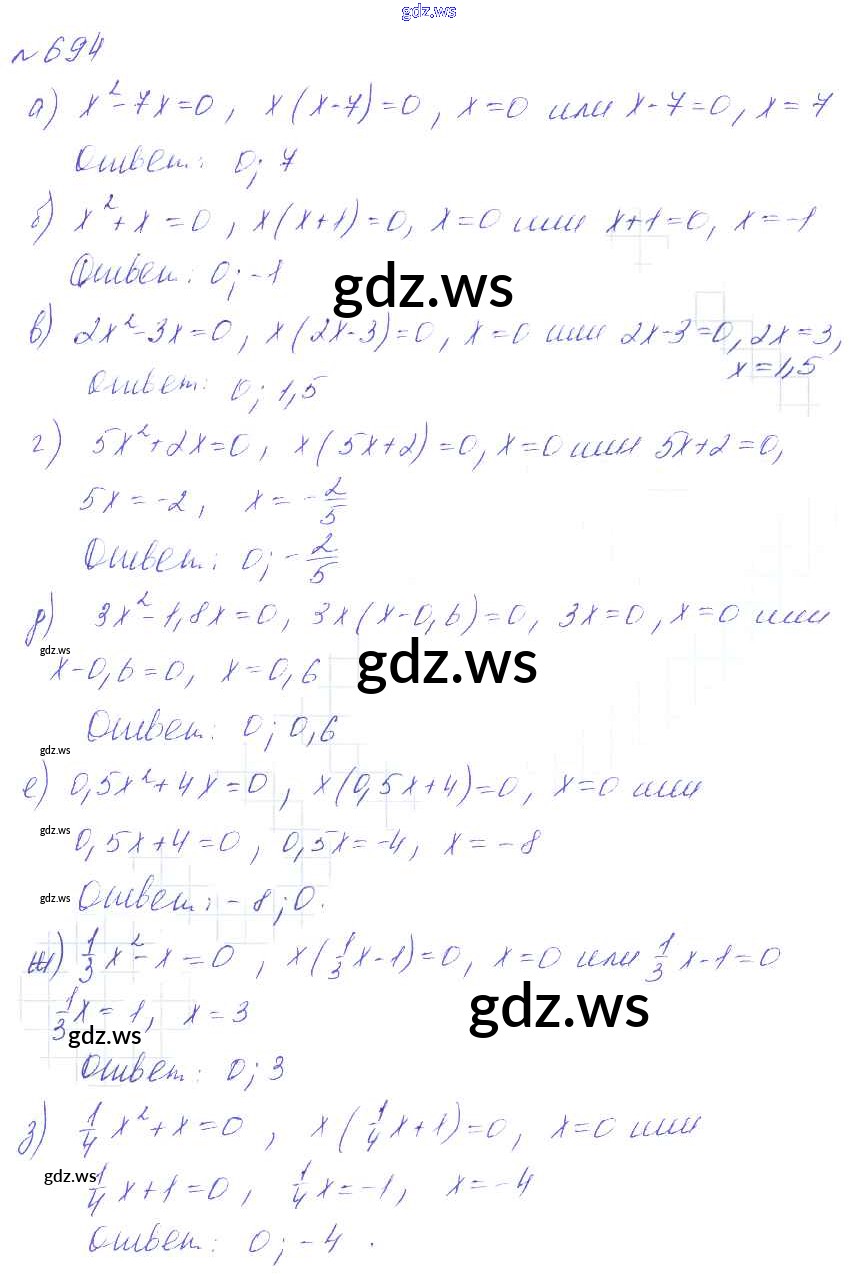 gdz.ws
№694
а) x²-7x=0, x(x-7)=0, x=0 или x-7=0, x=7
Ответ: 0; 7
б) x²+x=0, x(x+1)=0, x=0 или x+1=0, x=-1
Ответ: 0; -1
gdz.ws
в) 2x²-3x=0, x(2x-3)=0, x=0 или 2x-3=0, 2x=3,
x=1,5
Ответ: 0; 1,5
г) 5x²+2x=0, x(5x+2)=0, x=0 или 5x+2=0,
5x=-2, x=-2/5
Ответ: 0; -2/5
д) 3x²-1,8x=0, 3x(x-0,6)=0, 3x=0, x=0 или
gdz.ws
x-0,6=0, x=0,6
gdz.ws
Ответ: 0; 0,6
gdz.ws
е) 0,5x²+4x=0, x(0,5x+4)=0, x=0 или
gdz.ws
0,5x+4=0, 0,5x=-4, x=-8
gdz.ws
Ответ: -8; 0.
ж) 1/3x²-x=0, x(1/3x-1)=0, x=0 или 1/3x-1=0
gdz.ws
1/3x=1, x=3
gdz.ws
Ответ: 0; 3
з) 1/4x²+x=0, x(1/4x+1)=0, x=0 или
gdz.ws
1/4x+1=0, 1/4x=-1, x=-4
Ответ: 0; -4.